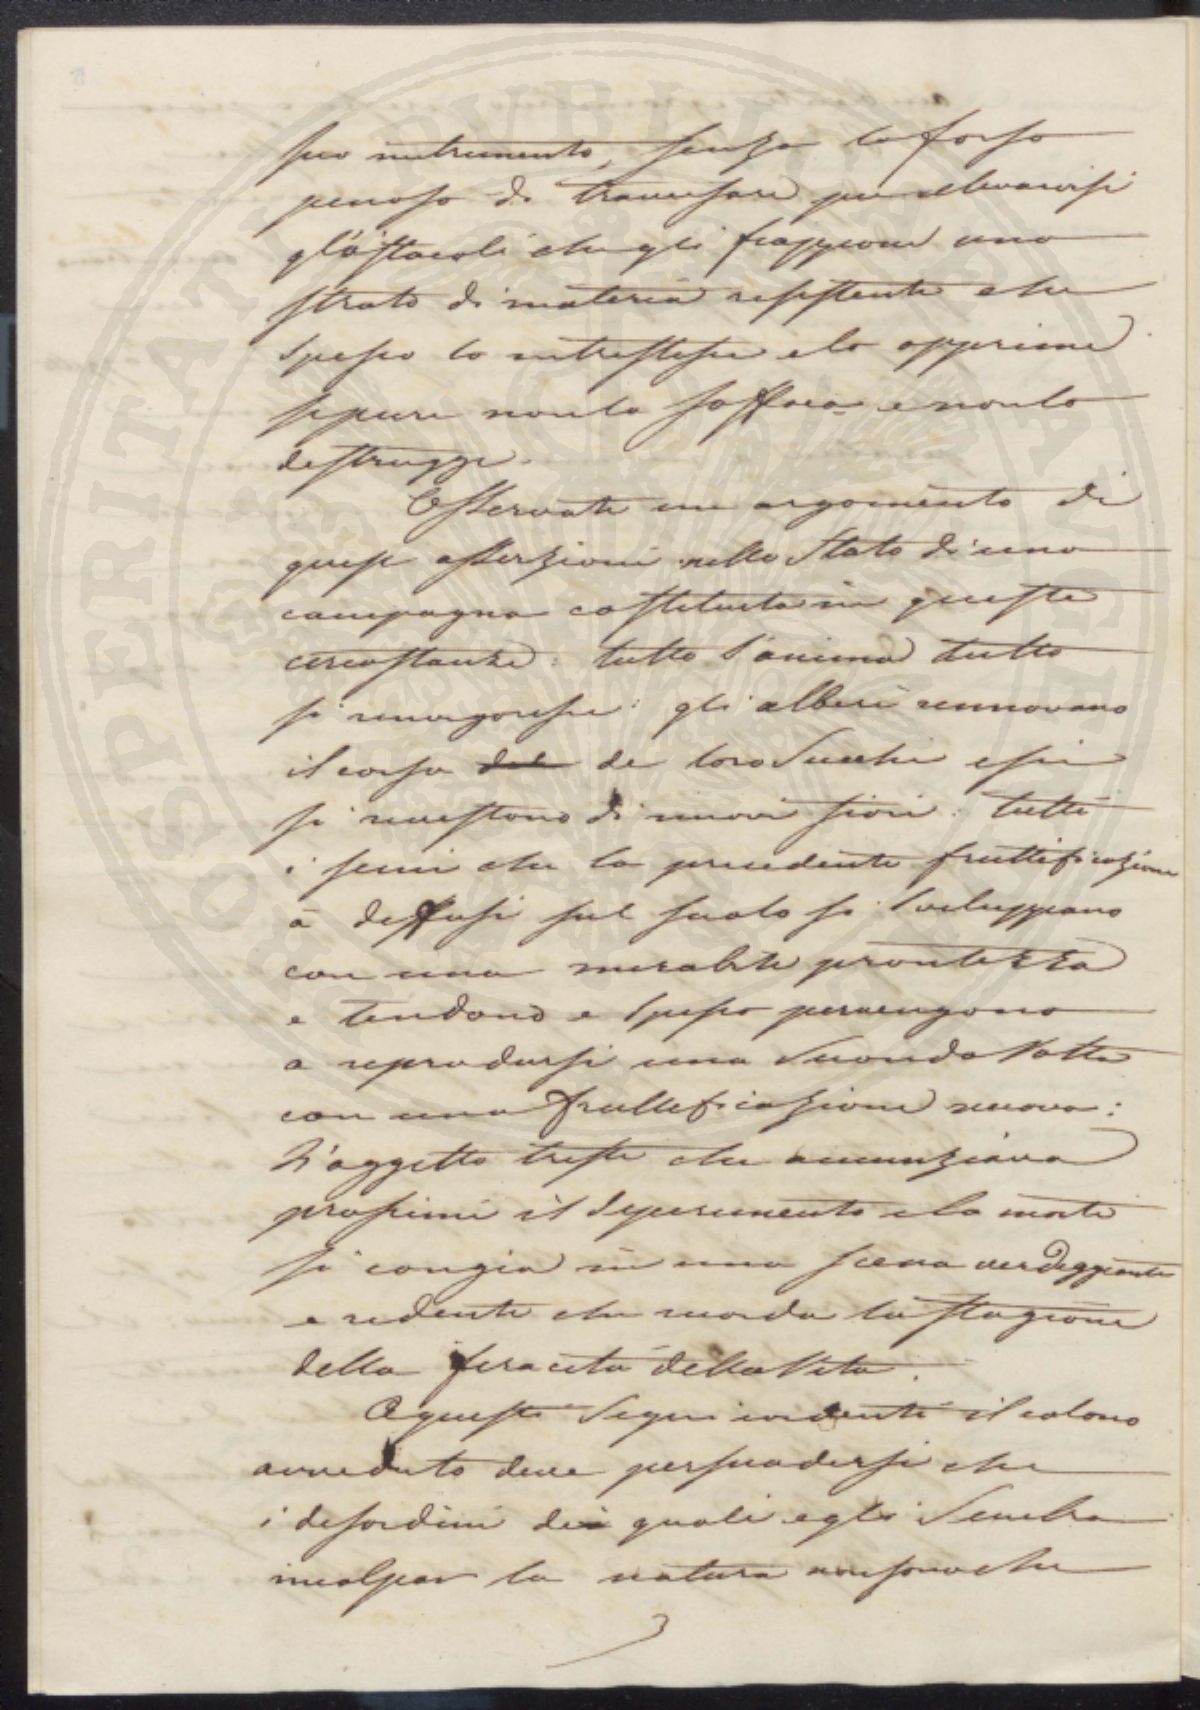 suo nutrimento, senza lo sforzo
penoso di traversare per elevarvisi
gl'ostacoli che gli frappone uno
strato di materia resistente che
spesso lo intristisce e lo opprime
se pure non lo soffoca e non lo
distrugge.
Osservate un argomento di
queste asserzioni nello Stato di una
campagna costituita in queste
circostanze: tutto s'anima tutto
si rinvigorisce: gli alberi rinnovano
il corso de loro Succhi e
si rivestono di nuovi fiori: tutti
i semi che la precedente fruttificazione
à diffusi sul suolo si sviluppano
con una mirabile prontezza
e tendono e spesso pervengono
a riprodursi una Seconda Volta
con una fruttificazione nuova:
L'aggetto triste che annunziava
prossimi il deperimento e la morte
si cangia in una scena verdeggiante
e ridente che ricorda la stagione
della feracità della Vita.
A questi Segni evidenti il colono
avveduto deve persuadersi che
i disordini dei quali egli Sembra
incolpar la natura non sono che
PROSPERITATI PUBLICAE AUGENDAE